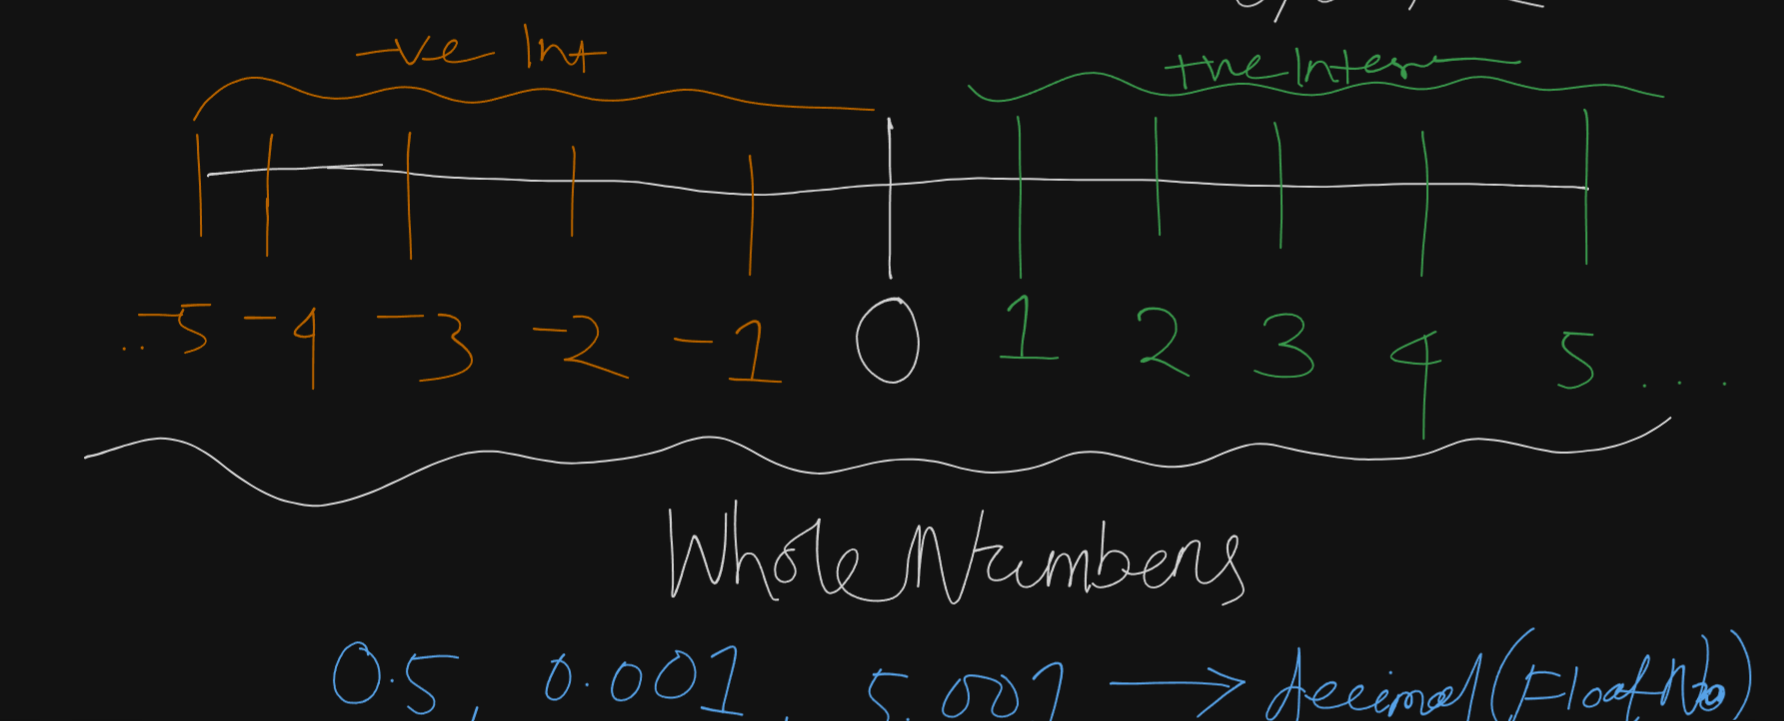 -ve Int +ve Integer
..-5 -4 -3 -2 -1 0 1 2 3 4 5 ...
Whole Numbers
0.5, 0.001, 5.001 → decimal (Float No)